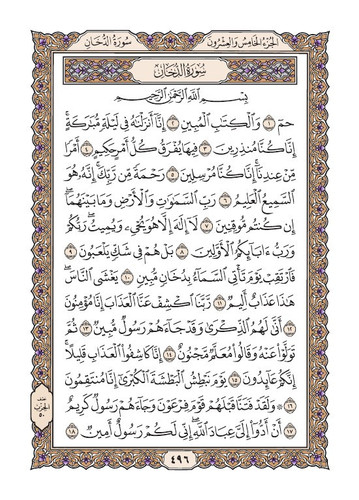 الجزء الخامس والعشرون سورة الدخان
سُورَةُ الدُّخَانِ
بِسْمِ اللَّهِ الرَّحْمَٰنِ الرَّحِيمِ
حمٓ ١ وَالْكِتَابِ الْمُبِينِ ٢ إِنَّآ أَنزَلْنَاهُ فِى لَيْلَةٍ مُّبَارَكَةٍ
إِنَّا كُنَّا مُنذِرِينَ ٣ فِيهَا يُفْرَقُ كُلُّ أَمْرٍ حَكِيمٍ ٤ أَمْرًا
مِّنْ عِندِنَآ إِنَّا كُنَّا مُرْسِلِينَ ٥ رَحْمَةً مِّن رَّبِّكَ إِنَّهُۥ هُوَ
السَّمِيعُ الْعَلِيمُ ٦ رَبِّ السَّمَٰوَٰتِ وَالْأَرْضِ وَمَا بَيْنَهُمَآ
إِن كُنتُم مُّوقِنِينَ ٧ لَآ إِلَٰهَ إِلَّا هُوَ يُحْىِۦ وَيُمِيتُ رَبُّكُمْ
وَرَبُّ ءَابَآئِكُمُ الْأَوَّلِينَ ٨ بَلْ هُمْ فِى شَكٍّ يَلْعَبُونَ ٩
فَارْتَقِبْ يَوْمَ تَأْتِى السَّمَآءُ بِدُخَانٍ مُّبِينٍ ١٠ يَغْشَى النَّاسَ
هَٰذَا عَذَابٌ أَلِيمٌ ١١ رَّبَّنَا اكْشِفْ عَنَّا الْعَذَابَ إِنَّا مُؤْمِنُونَ
١٢ أَنَّىٰ لَهُمُ الذِّكْرَىٰ وَقَدْ جَآءَهُمْ رَسُولٌ مُّبِينٌ ١٣ ثُمَّ
تَوَلَّوْا عَنْهُ وَقَالُوا مُعَلَّمٌ مَّجْنُونٌ ١٤ إِنَّا كَاشِفُوا الْعَذَابِ قَلِيلًا
إِنَّكُمْ عَآئِدُونَ ١٥ يَوْمَ نَبْطِشُ الْبَطْشَةَ الْكُبْرَىٰٓ إِنَّا مُنتَقِمُونَ
١٦ ۞ وَلَقَدْ فَتَنَّا قَبْلَهُمْ قَوْمَ فِرْعَوْنَ وَجَآءَهُمْ رَسُولٌ كَرِيمٌ
١٧ أَنْ أَدُّوٓا إِلَىَّ عِبَادَ اللَّهِ إِنِّى لَكُمْ رَسُولٌ أَمِينٌ ١٨
نصف
الحزب
٥٠
٤٩٦